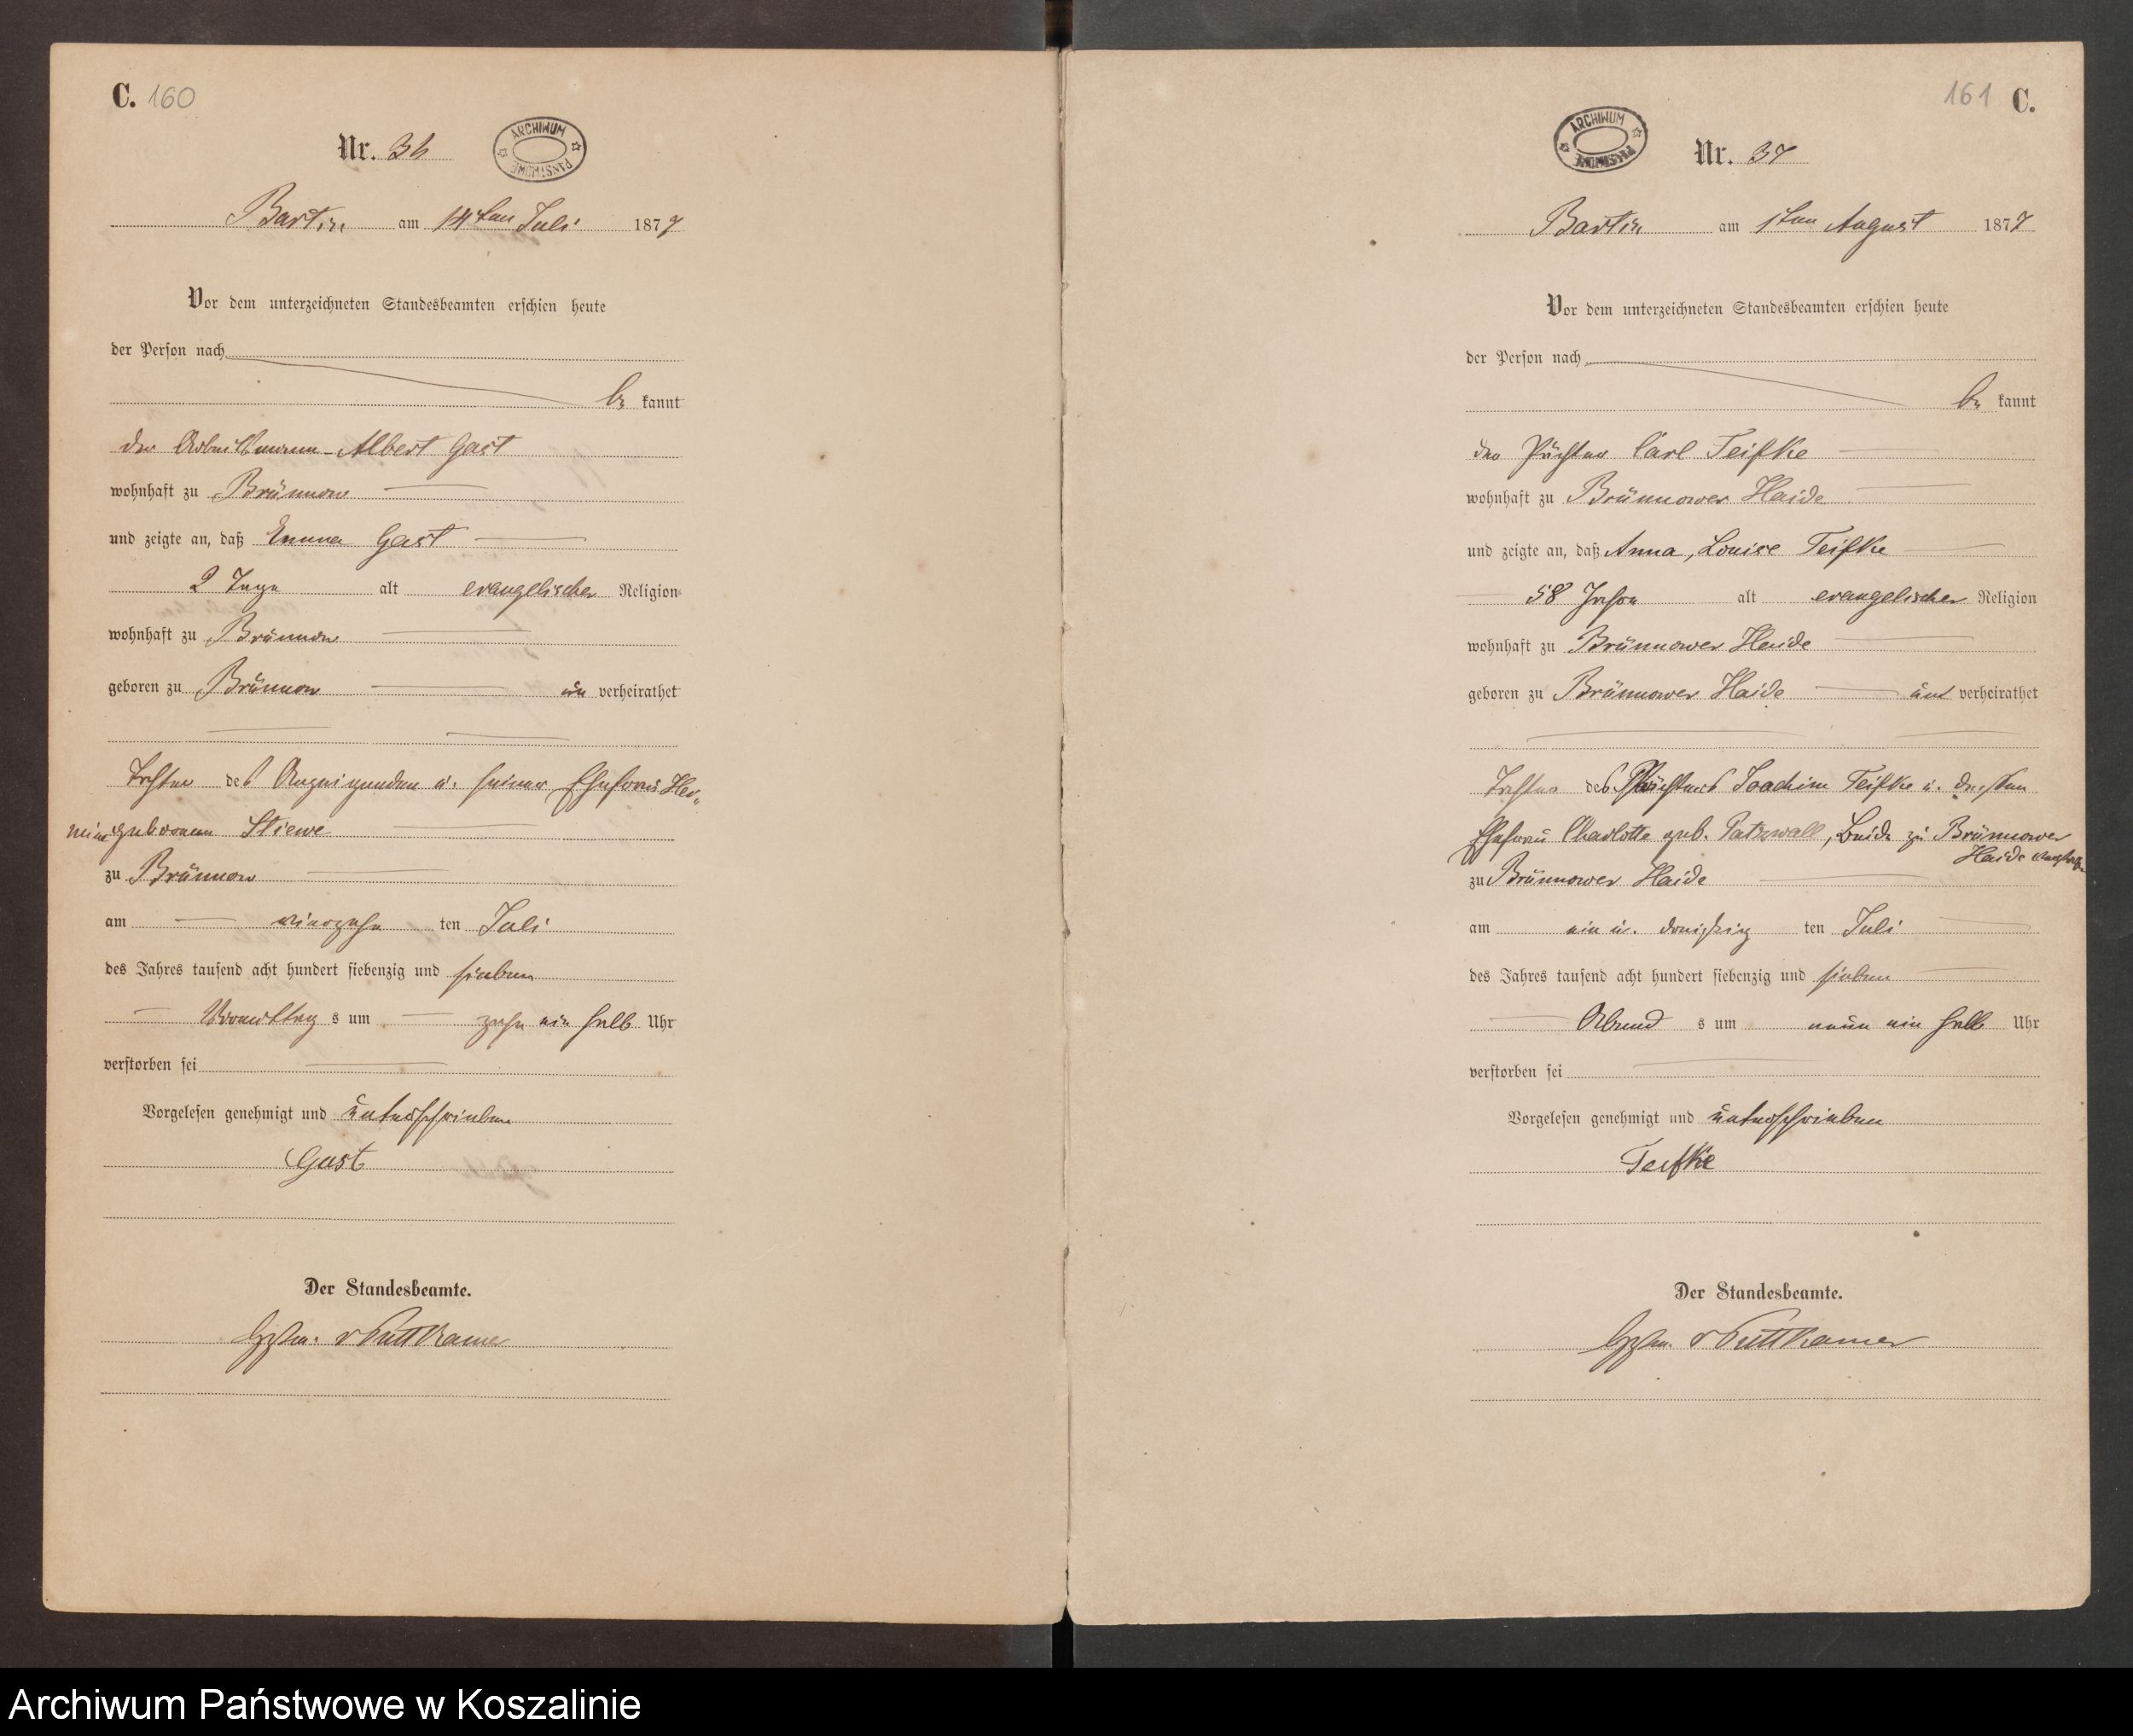 C. 160
Nr. 36
ARCHIWUM PAŃSTWOWE
Bartin am 14ten Juli 1877
Vor dem unterzeichneten Standesbeamten erschien heute
der Person nach
be kannt
der Arbeitsmann Albert Gast
wohnhaft zu Brünnow
und zeigte an, daß Emma Gast
2 Tage alt evangelischer Religion
wohnhaft zu Brünnow
geboren zu Brünnow un verheirathet
Tochter des Anzeigenden u. seiner Ehefrau Her„
mine geborenen Stiewe
zu Brünnow
am vierzehn ten Juli
des Jahres tausend acht hundert siebenzig und sieben
Vormittag s um zehn ein halb Uhr
verstorben sei
Vorgelesen genehmigt und unterschrieben
Gast
Der Standesbeamte.
v Puttkamer
161 C.
ARCHIWUM PAŃSTWOWE
Nr. 37
Bartin am 1ten August 1877
Vor dem unterzeichneten Standesbeamten erschien heute
der Person nach
be kannt
der Pächter Carl Teifke
wohnhaft zu Brünnower Haide
und zeigte an, daß Anna, Louise Teifke
58 Jahre alt evangelischer Religion
wohnhaft zu Brünnower Heide
geboren zu Brünnower Haide und verheirathet
Tochter des Pächters Joachim Teifke u. dessen
Ehefrau Charlotte geb. Patzwall, Beide zu Brünnower
Haide
zu Brünnower Haide
am ein u. dreißig ten Juli
des Jahres tausend acht hundert siebenzig und sieben
Abend s um neun ein halb Uhr
verstorben sei
Vorgelesen genehmigt und unterschrieben
Teifke
Der Standesbeamte.
v Puttkamer
Archiwum Państwowe w Koszalinie